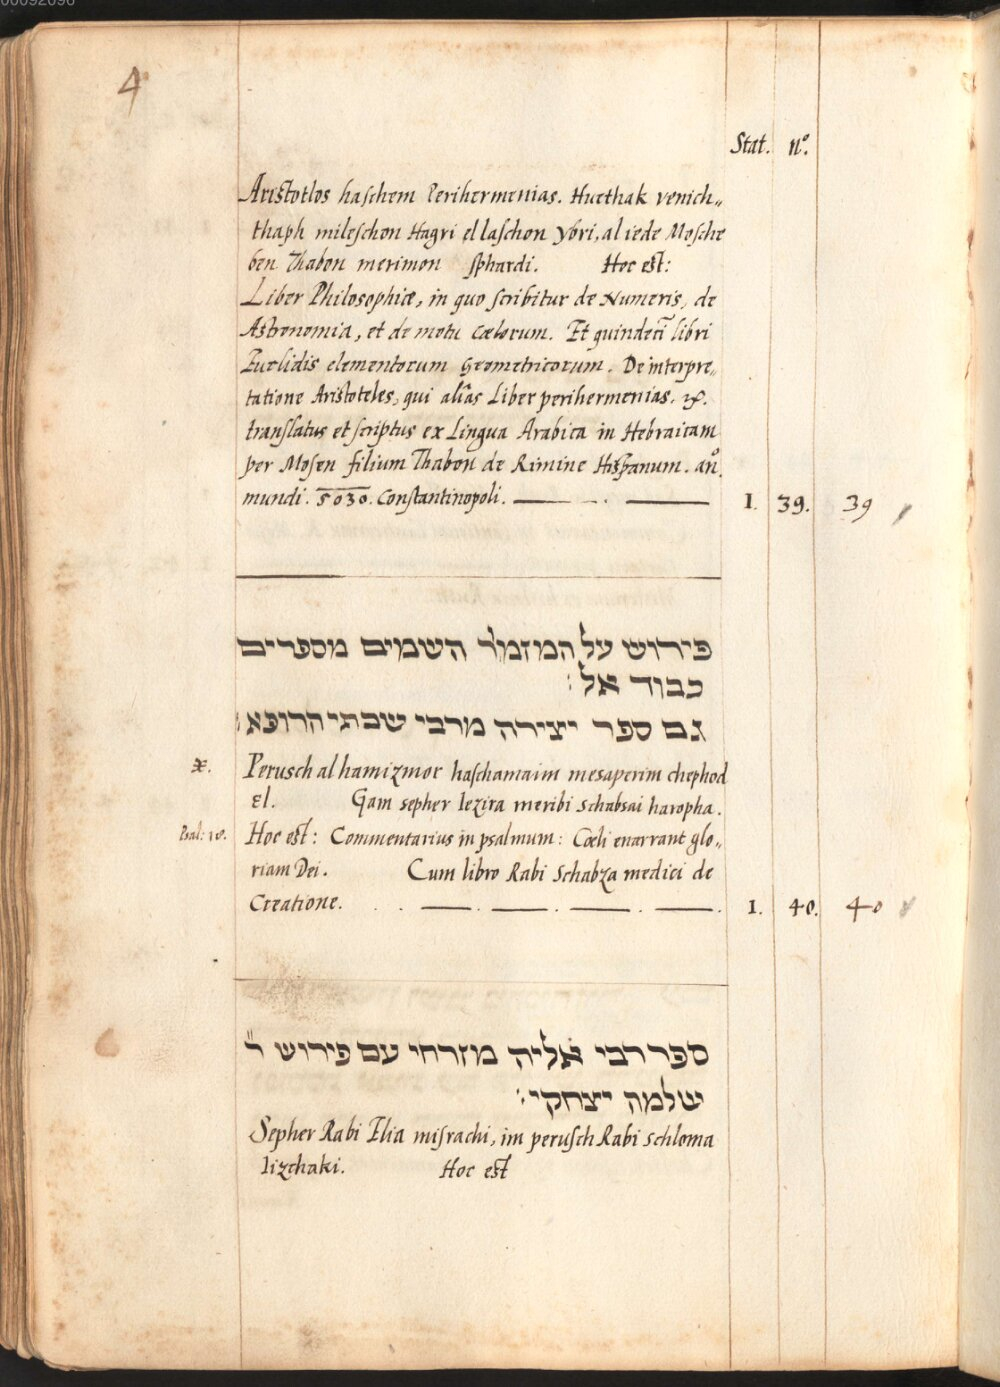 00092096
4
Stat. nº.
Aristotlos haschem Perihermenias. Huethak venich„
thaph mileschon Hagri el laschon ybri, al iede Mosche
ben Thabon merimon sphardi. Hoc est:
Liber Philosophiæ, in quo scribitur de Numeris, de
Astronomia, et de motu cœlorum. Et quindecī libri
Euclidis elementorum Geometricorum. De interpre„
tatione Aristoteles, qui aliâs Liber perihermenias.
translatus et scriptus ex Lingua Arabica in Hebraicam
per Mosen filium Thabon de Rimine Hispanum. anº.
mundi. 5030. Constantinopoli. 1. 39. 39
פירוש על המזמור השמים מספרים
כבוד אל:
גם ספר יצירה מרבי שבתי הרופא:
Perusch al hamizmor haschamaim mesaperim chephod
El. Gam sepher Iezira meribi Schabsai haropha.
Psal: 18. Hoc est: Commentarius in psalmum: Cœli enarrant glo„
riam Dei. Cum libro Rabi Schabza medici de
Creatione. 1. 40. 40
ספר רבי אליה מזרחי עם פירוש ר"
שלמה יצחקי:
Sepher Rabi Elia misrachi, im perusch Rabi Schloma
Iizchaki. Hoc est